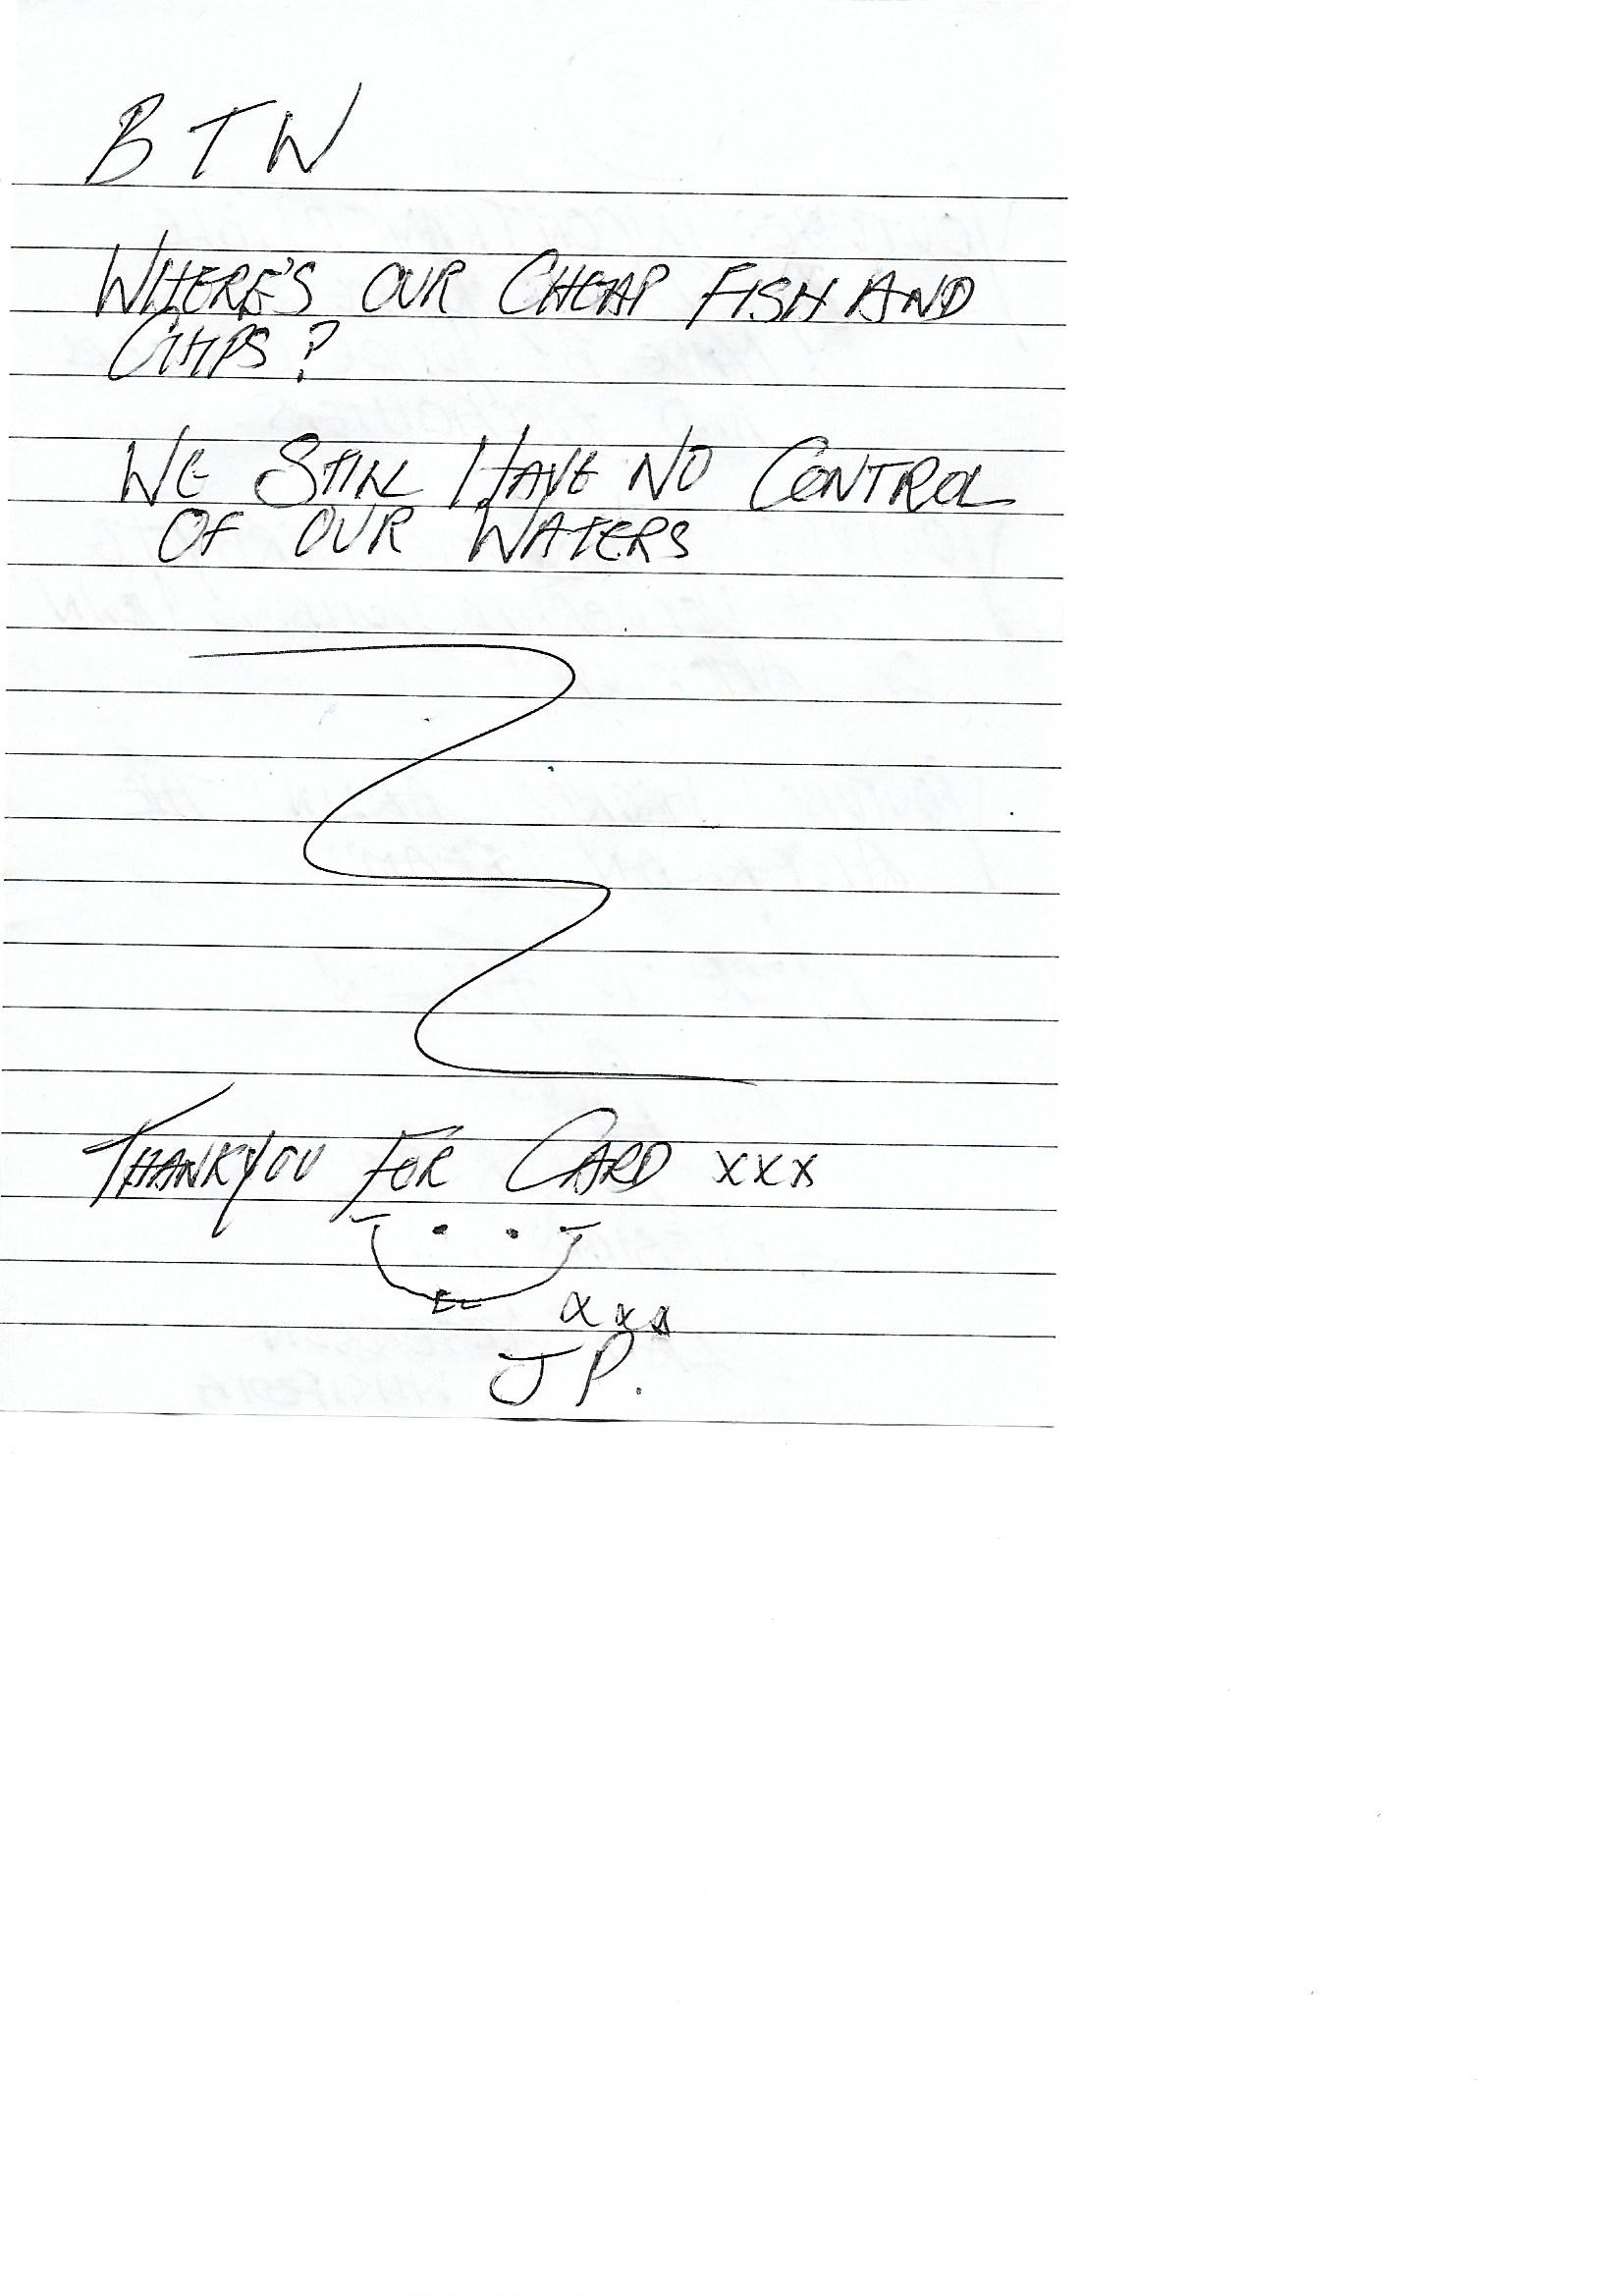 BTW
WHERE'S OUR CHEAP FISH AND
CHIPS?
WE STILL HAVE NO CONTROL
OF OUR WATERS
THANKYOU FOR CARD xxx
xxx
JP.